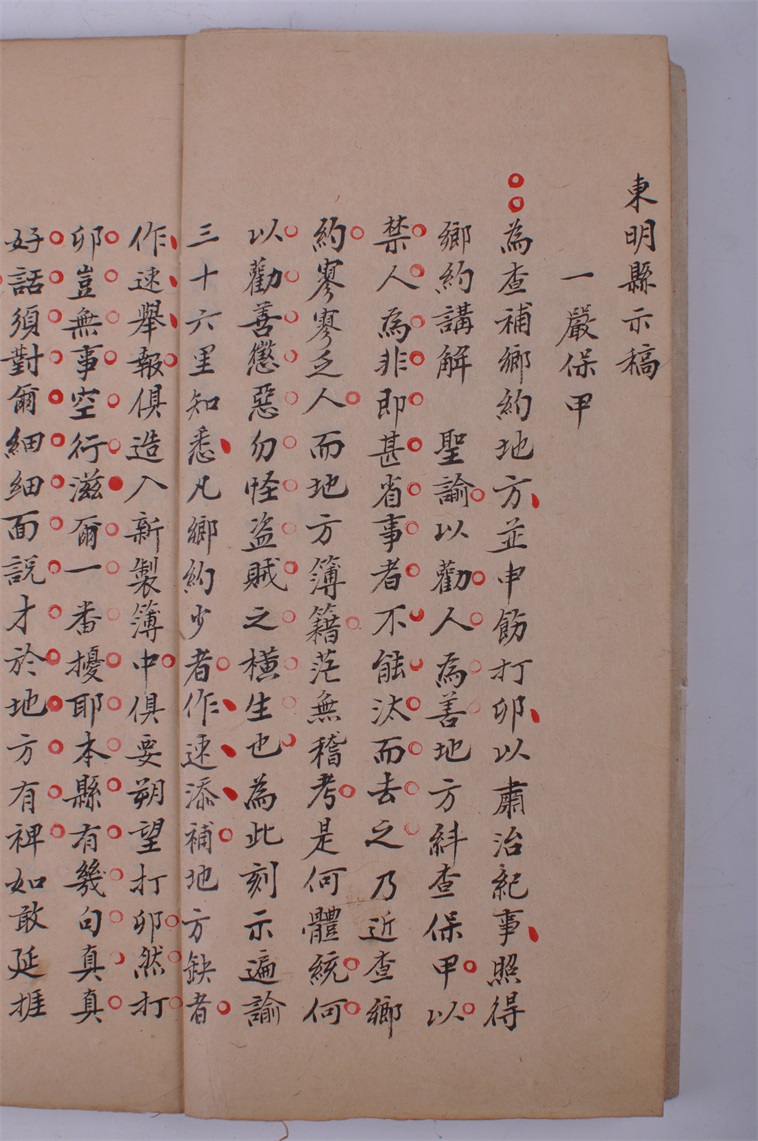 東明縣示稿
一嚴保甲
為查補鄉約地方並申飭打卯以肅治紀事照得
鄉約講解 聖諭以勸人為善地方糾查保甲以
禁人為非即甚省事者不能汰而去之乃近查鄉
約寥寥乏人而地方簿籍茫無稽考是何體統何
以勸善懲惡勿怪盜賊之橫生也為此刻示遍諭
三十六里知悉凡鄉約少者作速添補地方缺者
作速舉報俱造入新製簿中俱要朔望打卯然打
卯豈無事空行滋爾一番擾耶本縣有幾句真真
好話須對爾細細面說才於地方有裨如敢延捱